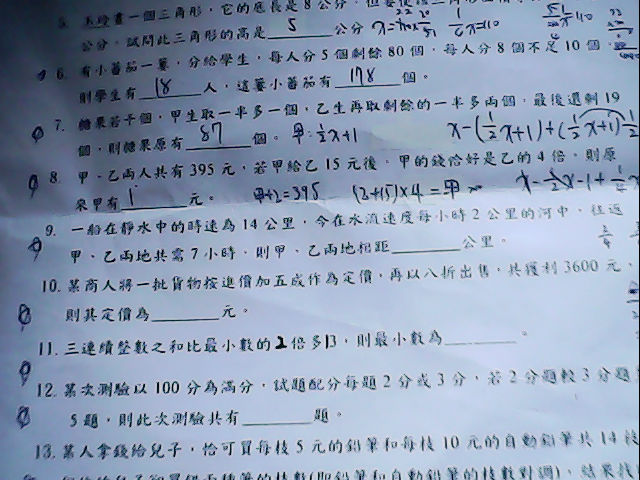 5. 玉玲畫一個三角形，它的底長是8公分
公分，試問此三角形的高是 5 公分
6. 有小番茄一簍，分給學生，每人分5個剩餘80個，每人分8個不足10個，
則學生有 18 人，這簍小番茄有 178 個。
7. 糖果若干個，甲生取一半多一個，乙生再取剩餘的一半多兩個，最後還剩19
個，則糖果原有 87 個。 甲：½x+1 x-(½x+1)+(½x+1)½
8. 甲、乙兩人共有395元，若甲給乙15元後，甲的錢恰好是乙的4倍，則原
來甲有 1 元。 甲+2=395 (2+15)×4=甲
9. 一船在靜水中的時速為14公里，今在水流速度每小時2公里的河中，往返
甲、乙兩地共需7小時，則甲、乙兩地相距 公里。
10. 某商人將一批貨物按進價加五成作為定價，再以八折出售，共獲利3600元，
則其定價為 元。
11. 三連續整數之和比最小數的2倍多13，則最小數為 。
12. 某次測驗以100分為滿分，試題配分每題2分或3分，若2分題較3分題
5題，則此次測驗共有 題。
13. 某人拿錢給兒子，恰可買每枝5元的鉛筆和每枝10元的自動鉛筆共14枝